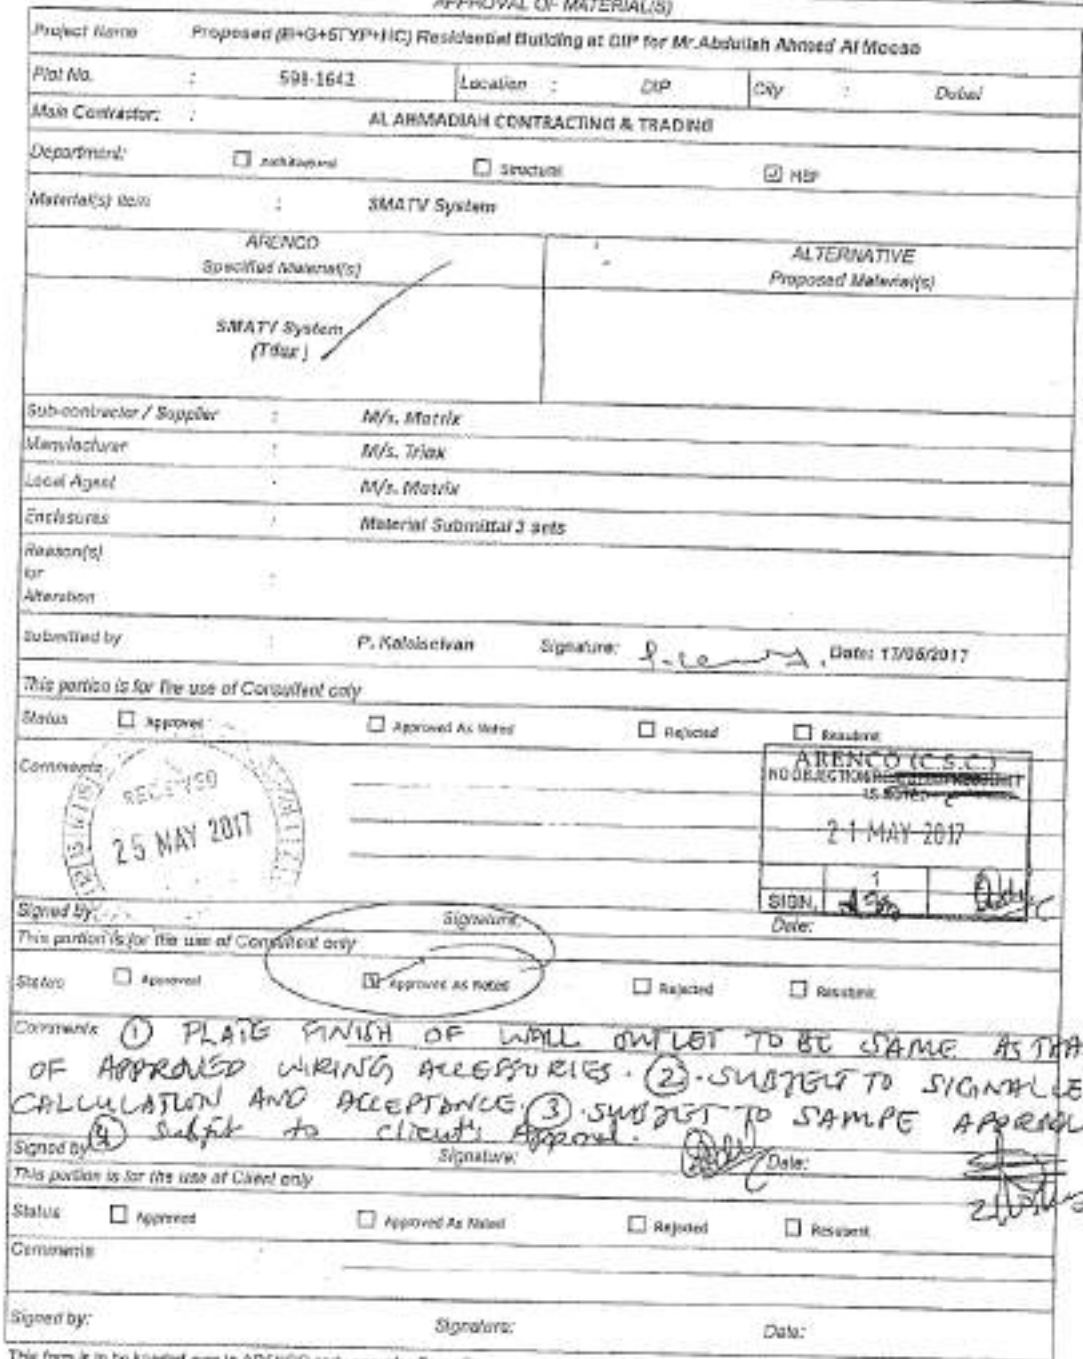 APPROVAL OF MATERIAL(S)
Project Name Proposed (B+G+5TYP+HC) Residential Building at DIP for Mr.Abdullah Ahmed Al Moosa
Plot No. : 598-1642 Location : DIP City : Dubai
Main Contractor: : AL AHMADIAH CONTRACTING & TRADING
Department: Architectural Structural MEP
Material(s) Item : SMATV System
ARENCO ALTERNATIVE
Specified Material(s) Proposed Material(s)
SMATV System
(Triax)
Sub-contractor / Supplier : M/s. Matrix
Manufacturer : M/s. Triax
Local Agent : M/s. Matrix
Enclosures : Material Submittal 3 sets
Reason(s)
for :
Alteration
Submitted by : P. Kalaiselvan Signature: Date: 17/05/2017
This portion is for the use of Consultant only
Status Approved Approved As Noted Rejected Resubmit
Comments
RECEIVED
25 MAY 2017
ARENCO (C.S.C.)
NO OBJECTION
IS NOTED
21 MAY 2017
1
SIGN.
Signed by: Signature: Date:
This portion is for the use of Consultant only
Status Approved Approved As Noted Rejected Resubmit
Comments ① PLATE FINISH OF WALL OUTLET TO BE SAME AS THA
OF APPROVED WIRING ACCESSORIES. ②. SUBJECT TO SIGNAL LE
CALCULATION AND ACCEPTANCE. ③. SUBJECT TO SAMPE APPROVAL
④ Subject to client's Approval.
Signed by Signature: Date:
This portion is for the use of Client only
Status Approved Approved As Noted Rejected Resubmit
Comments
Signed by: Signature: Date:
This form is to be